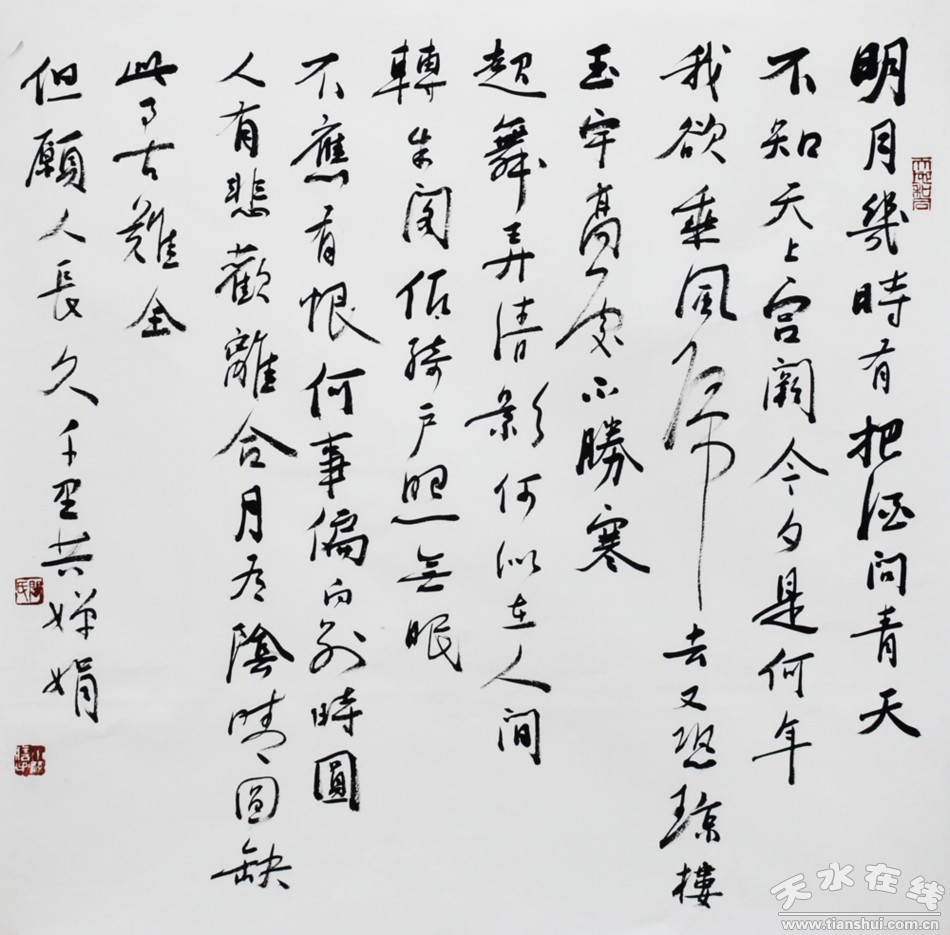 明月幾時有把酒问青天
不知天上宫闕今夕是何年
我欲乘風歸去又恐琼樓
玉宇高處不勝寒
起舞弄清影何似在人间
轉朱阁低绮户照無眠
不應有恨何事偏向别時圓
人有悲歡離合月有陰晴圆缺
此事古難全
但願人長久千里共嬋娟
天水在线
www.tianshui.com.cn